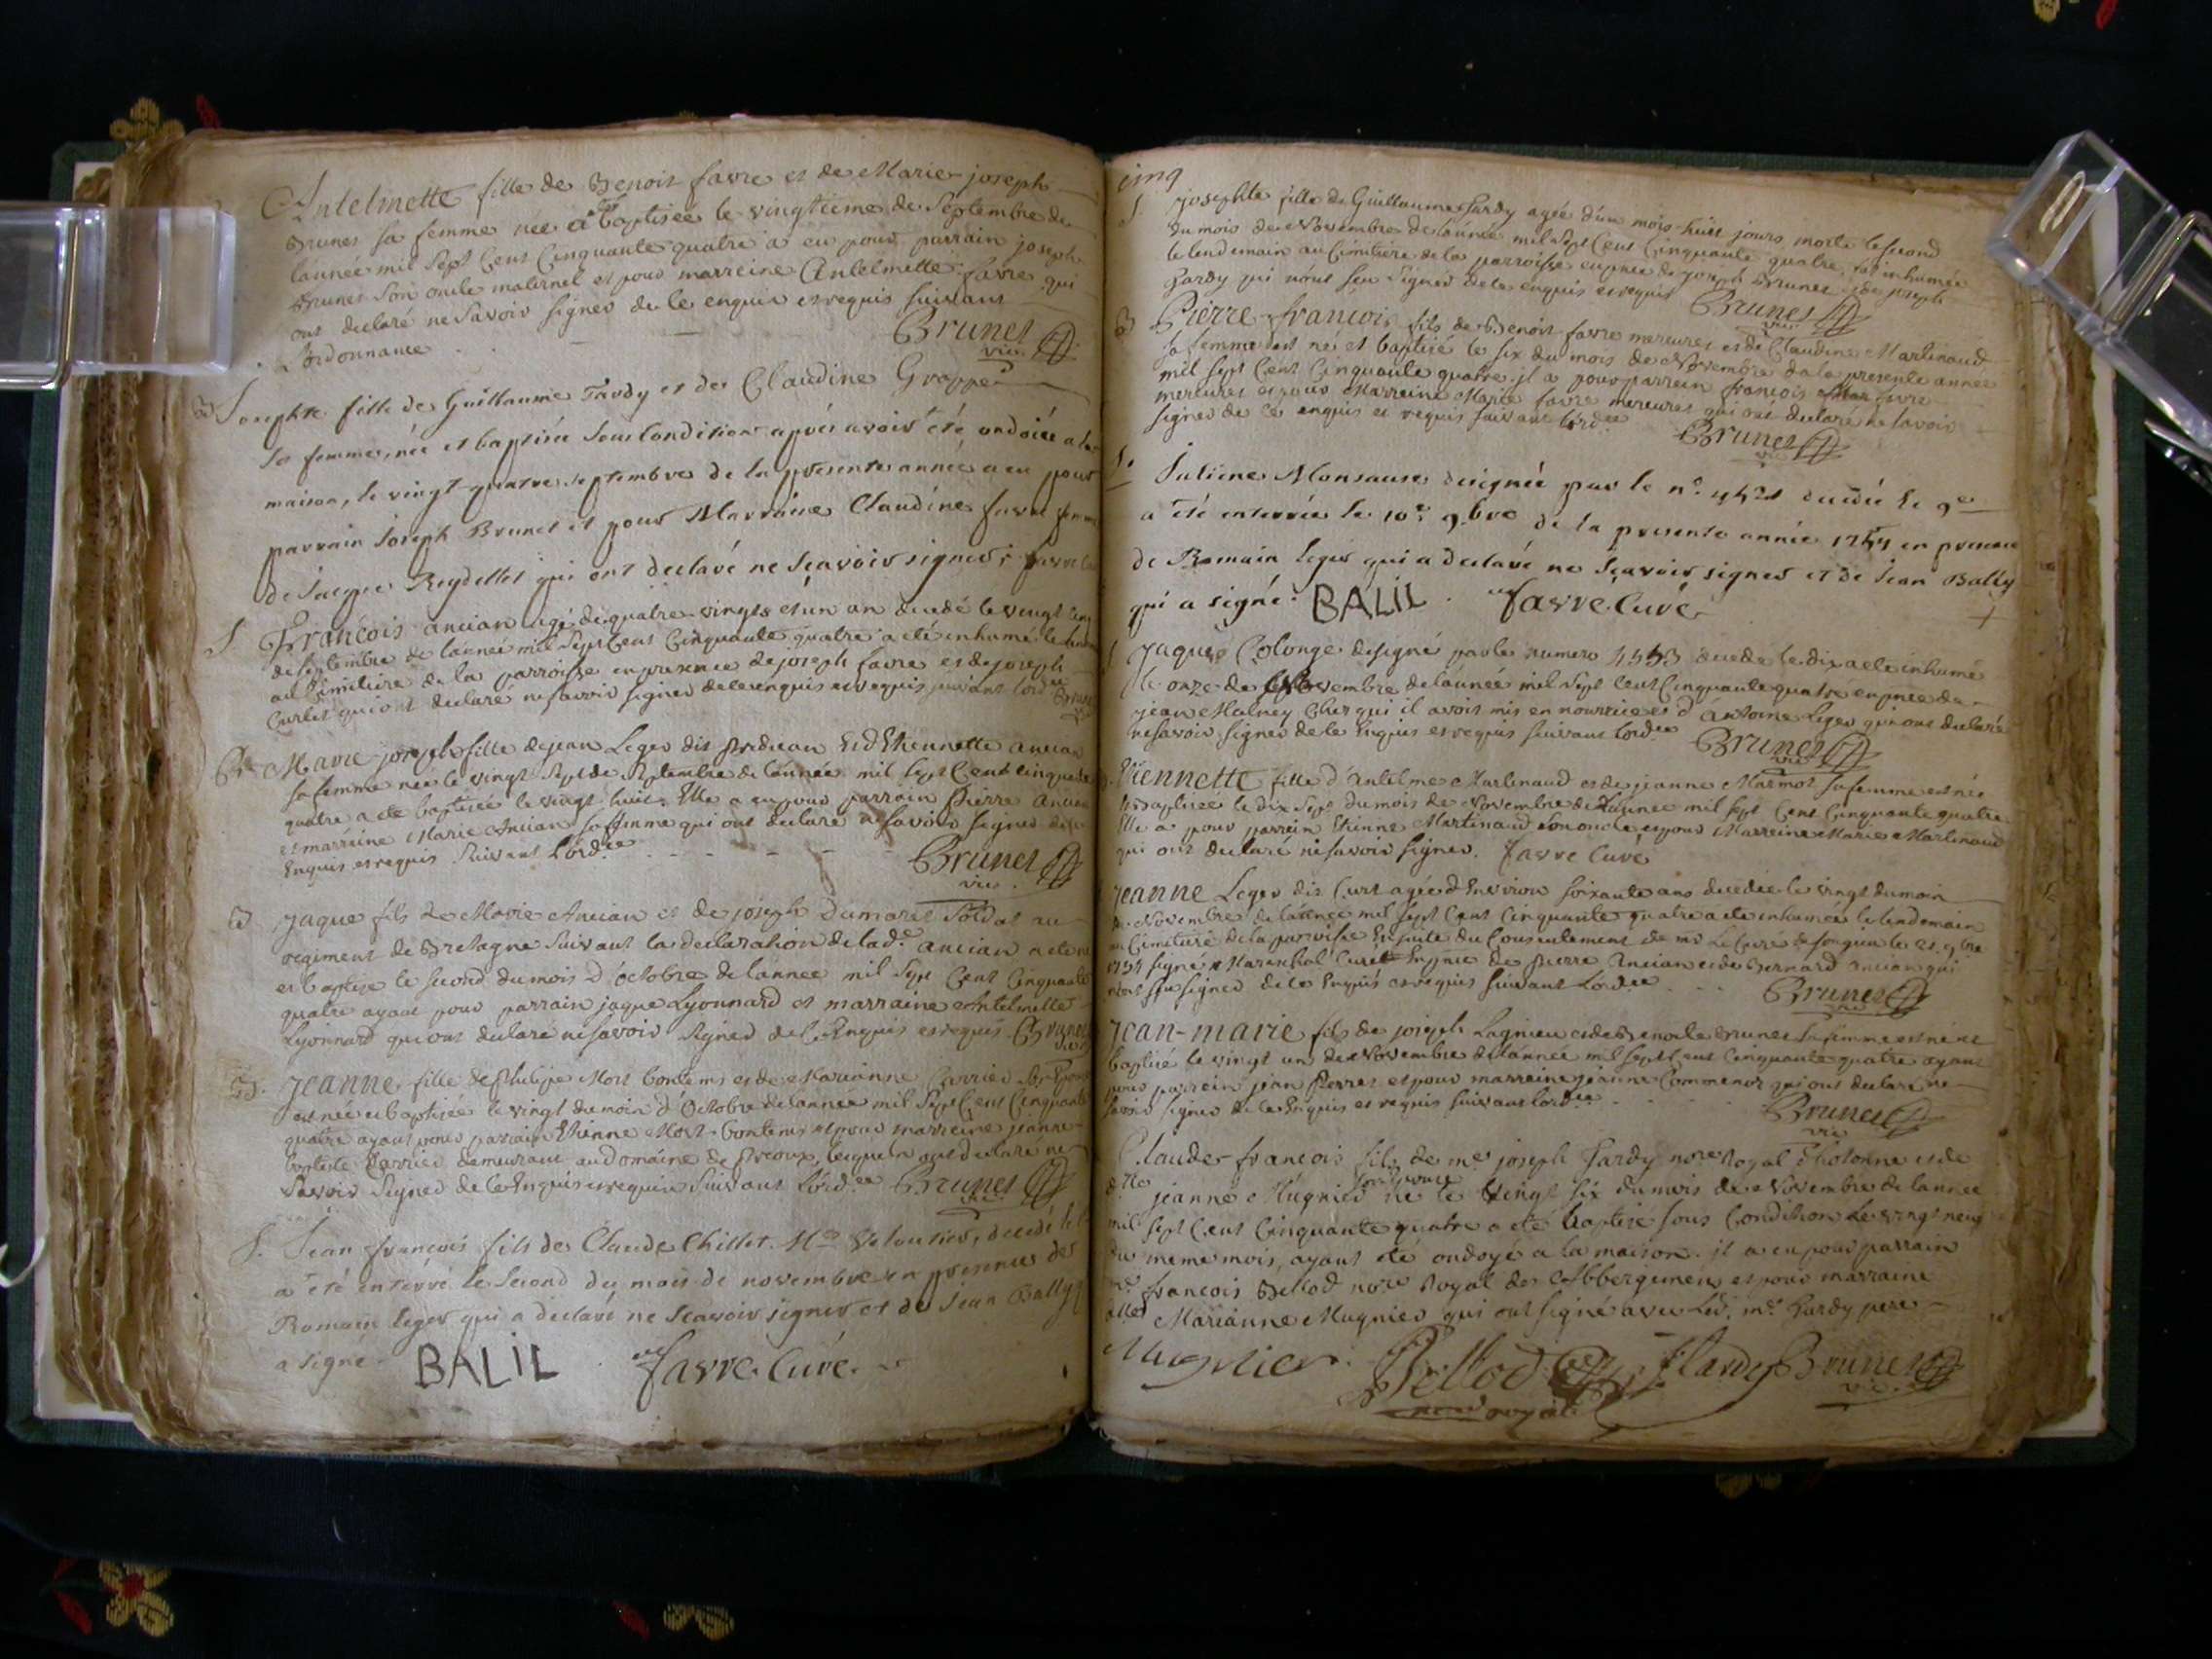 Antelmette fille de Benoit favre et de Marie joseph
Brunet sa femme née a été baptisée le vingtieme de Septembre de
lannée mil sept Cent Cinquante quatre a eu pour parrain joseph
Brunet son oncle maternel et pour marreine Antelmette favre qui
ont declaré ne Savoir signer de ce enquis et requis suivant
Lordonnance
Brunet
vic.
B Josephte fille de Guillaume Tardy et de Claudine Groppe
sa femme, née et baptisée sous Condition après avoir été ondoiée a la
maison, le vingt-quatre septembre de la presente année a eu pour
parrain Joseph Brunet et pour Marraine Claudine favre femme
de Jacque Reydellet qui ont declaré ne sçavoir signer; favre
S François ancian agé de quatre vingts et un an decedé le vingt cinq
de septembre de lannée mil Sept Cent Cinquante quatre a été inhumé le
au Cimitiere de la parroisse en presence de joseph favre et de joseph
Curlet qui ont declaré ne savoir signer de ce enquis et requis suivant lord.ce Brunet
Marie-joseph fille de jean Leger dit et d'Etiennette ancian
sa femme née le vingt Sept de Septembre de lannée mil sept Cent Cinquante
quatre a été baptisée le vingt-huit. Elle a eu pour parrain pierre ancian
et marreine Marie Ancian sa femme qui ont declaré ne savoir signer de ce
Enquis et requis suivant Lord.ce
Brunet
vic.
B jaque fils de Marie Ancian et de joseph Dumaret Soldat au
regiment de Bretagne suivant la declaration de lad.e ancian
et baptisé le second du mois d'octobre de lannée mil sept Cent Cinquante
quatre ayant pour parrain jaque Lyonnard et marraine Antelmette
Lyonnard qui ont declaré ne savoir signer de ce Enquis et requis Brunet
B. jeanne fille de philipe Mort Contems et de Marianne Carrier
est née et baptisée le vingt du mois d'Octobre de lannée mil Sept Cent Cinquante
quatre ayant pour parrain Etienne Mort-Contems et pour marreine jeanne
baptiste Carrier demeurant au domaine de lesquels ont declaré ne
Savoir Signer de ce Enquis et requis Suivant Lord.ce Brunet
S. Jean françois fils de Claude Chillet. M.re Veloutier, decedé le
a été enterré le second du mois de novembre en presence de
Romain leger qui a declaré ne sçavoir signer et de Jean Bally q
a signé. BALIL favre Curé.
S. josephte fille de Guillaume Hardy agée d'un mois huit jours morte le second
du mois de Novembre de lannée mil Sept Cent Cinquante quatre fut inhumée
le lendemain au Cimitiere de la parroisse en pnce de joseph Brunet et de joseph
hardy qui n'ont sçu signer de ce enquis et requis Brunet
vic.
B Pierre-françois fils de Benoit favre mercuret et de Claudine Martinaud
sa femme est né et baptisé le six du mois de Novembre de la presente année
mil sept Cent Cinquante quatre il a pour parrein françois favre
mercuret et pour Marreine Marie favre mercuret qui ont declaré ne savoir
signer de ce enquis et requis suivant lord.ce
Brunet
vic.
S. Juliene Monsause designée par le n.o decedée le 9.e
a été enterrée le 10.e 9.bre de la presente année 1754 en presence
de Romain leger qui a declaré ne sçavoir signer et de Jean Bally
qui a signé. BALIL. favre Curé
S jaque Colonge designé par le numero 4553 decedé le dix a eté inhumé
le onze de Novembre de lannée mil Sept Cent Cinquante quatre en pnce de
jean Malney Chez qui il avoit mis en nourrice et d'antoine Leger qui ont declaré
ne savoir signer de ce Enquis et requis suivant lord.ce Brunet
vic
Etiennette fille d'antelme Martinaud et de jeanne Marmot sa femme est née
et Baptisée le dix Sept du mois de Novembre de lannée mil sept Cent Cinquante quatre
Elle a pour parrein Etienne Martinaud son oncle et pour Marreine Marie Martinaud
qui ont declaré ne savoir signer. favre Curé
jeanne Leger dit Curt agée d'Environ soixante ans decedée le vingt du mois
de Novembre de lannee mil sept Cent Cinquante quatre a eté inhumée le lendemain
au Cimitiere de la parroisse Ensuite du Consentement de m.r Le Curé de le 21. 9.bre
1754 signé Marechal Curé En pnce de pierre Ancian et de Bernard ancian qui
n'ont sçu signer de ce Enquis et requis suivant Lord.ce
Brunet
vic
jean-marie fils de joseph Lagnieu et de Benoite Brunet sa femme est né et
baptisé le vingt un de Novembre de lannée mil sept Cent Cinquante quatre ayant
pour parrein jean pierret et pour marreine jeanne Commenor qui ont declaré ne
savoir signer de ce Enquis et requis suivant lord.ce
Brunet
vic
Claude-françois fils de m.e joseph hardy no.re Royal d'hotonne et de
d.lle jeanne Mugnier son Epouse né le Vingt six du mois de Novembre de lannée
mil Sept Cent Cinquante quatre a eté baptisé sous Condition le vingt neuf
du meme mois, ayant eté ondoyé a la maison. il a eu pour parrain
m.e francois Bellod no.re Royal des Abbergemens et pour marraine
d.lle Marianne Mugnier qui ont signé avec led. m.e hardy pere
Mugnier. Bellod Hardy Brunet
vic.